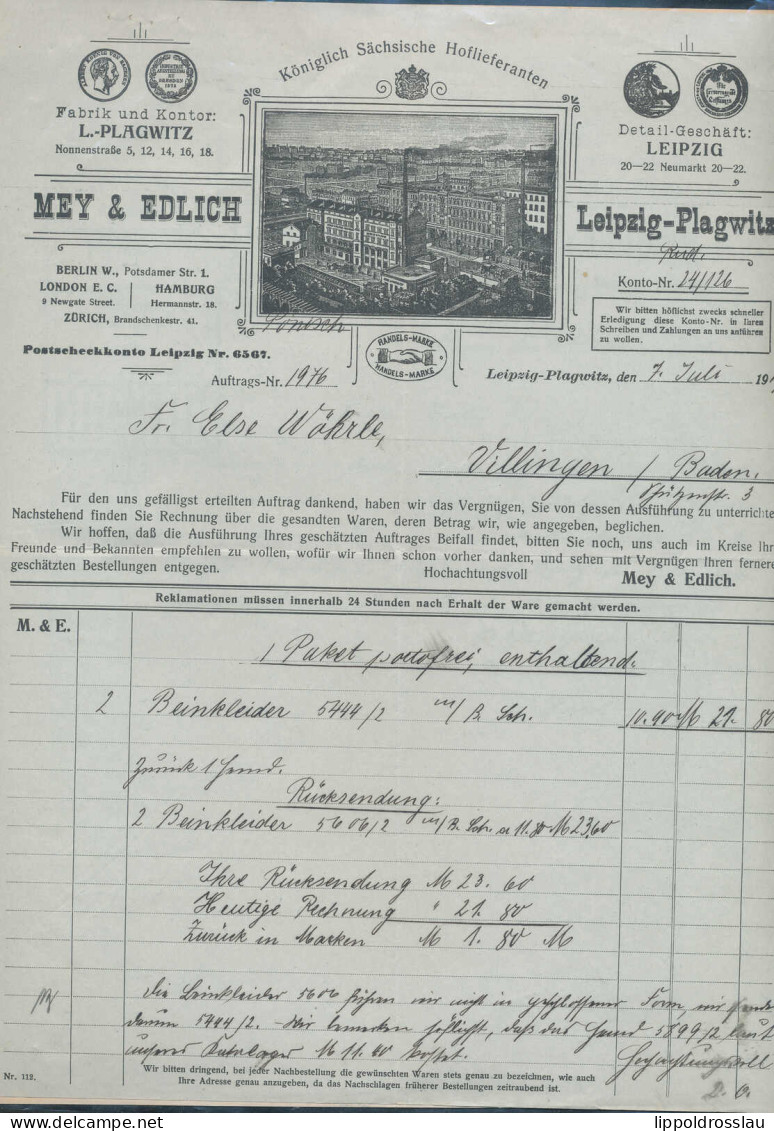 Königlich Sächsische Hoflieferanten
Fabrik und Kontor:
L.-PLAGWITZ
Nonnenstraße 5, 12, 14, 16, 18.
Detail-Geschäft:
LEIPZIG
20—22 Neumarkt 20—22.
MEY & EDLICH
Leipzig-Plagwitz
BERLIN W., Potsdamer Str. 1.
LONDON E. C.
9 Newgate Street.
HAMBURG
Hermannstr. 18.
ZÜRICH, Brandschenkestr. 41.
Postscheckkonto Leipzig Nr. 6567.
Konto-Nr. 24/126
Wir bitten höflichst zwecks schneller
Erledigung diese Konto-Nr. in Ihren
Schreiben und Zahlungen an uns anführen
zu wollen.
HANDELS-MARKE
HANDELS-MARKE
Auftrags-Nr. 1976
Leipzig-Plagwitz, den 7. Juli 191
Fr. Else Wöhrle,
Villingen / Baden.
3
Für den uns gefälligst erteilten Auftrag dankend, haben wir das Vergnügen, Sie von dessen Ausführung zu unterrichte
Nachstehend finden Sie Rechnung über die gesandten Waren, deren Betrag wir, wie angegeben, beglichen.
Wir hoffen, daß die Ausführung Ihres geschätzten Auftrages Beifall findet, bitten Sie noch, uns auch im Kreise Ihr
Freunde und Bekannten empfehlen zu wollen, wofür wir Ihnen schon vorher danken, und sehen mit Vergnügen Ihren fernere
geschätzten Bestellungen entgegen. Hochachtungsvoll Mey & Edlich.
Reklamationen müssen innerhalb 24 Stunden nach Erhalt der Ware gemacht werden.
M. & E.
1 Paket portofrei, enthaltend:
2 Beinkleider 5444/2 m/ B. Sch. 10.90 M 21. 80
Zurück 1 Hemd.
Rücksendung:
2 Beinkleider 5606/2 m/ B. Sch. a 11.80 M 23,60
Ihre Rücksendung M 23. 60
Heutige Rechnung " 21. 80
Zurück in Marken M 1. 80 M
Die Beinkleider 5606 führen wir nicht in geschlossener Form, wir
darum 5444/2. - Wir bemerken höflichst, daß das Hemd 5899/2 laut
unseres Kataloges M 11.80 kostet.
Hochachtungsvoll
D. O.
Wir bitten dringend, bei jeder Nachbestellung die gewünschten Waren stets genau zu bezeichnen, wie auch
Ihre Adresse genau anzugeben, da das Nachschlagen früherer Bestellungen zeitraubend ist.
Nr. 112.
lippoldrosslau